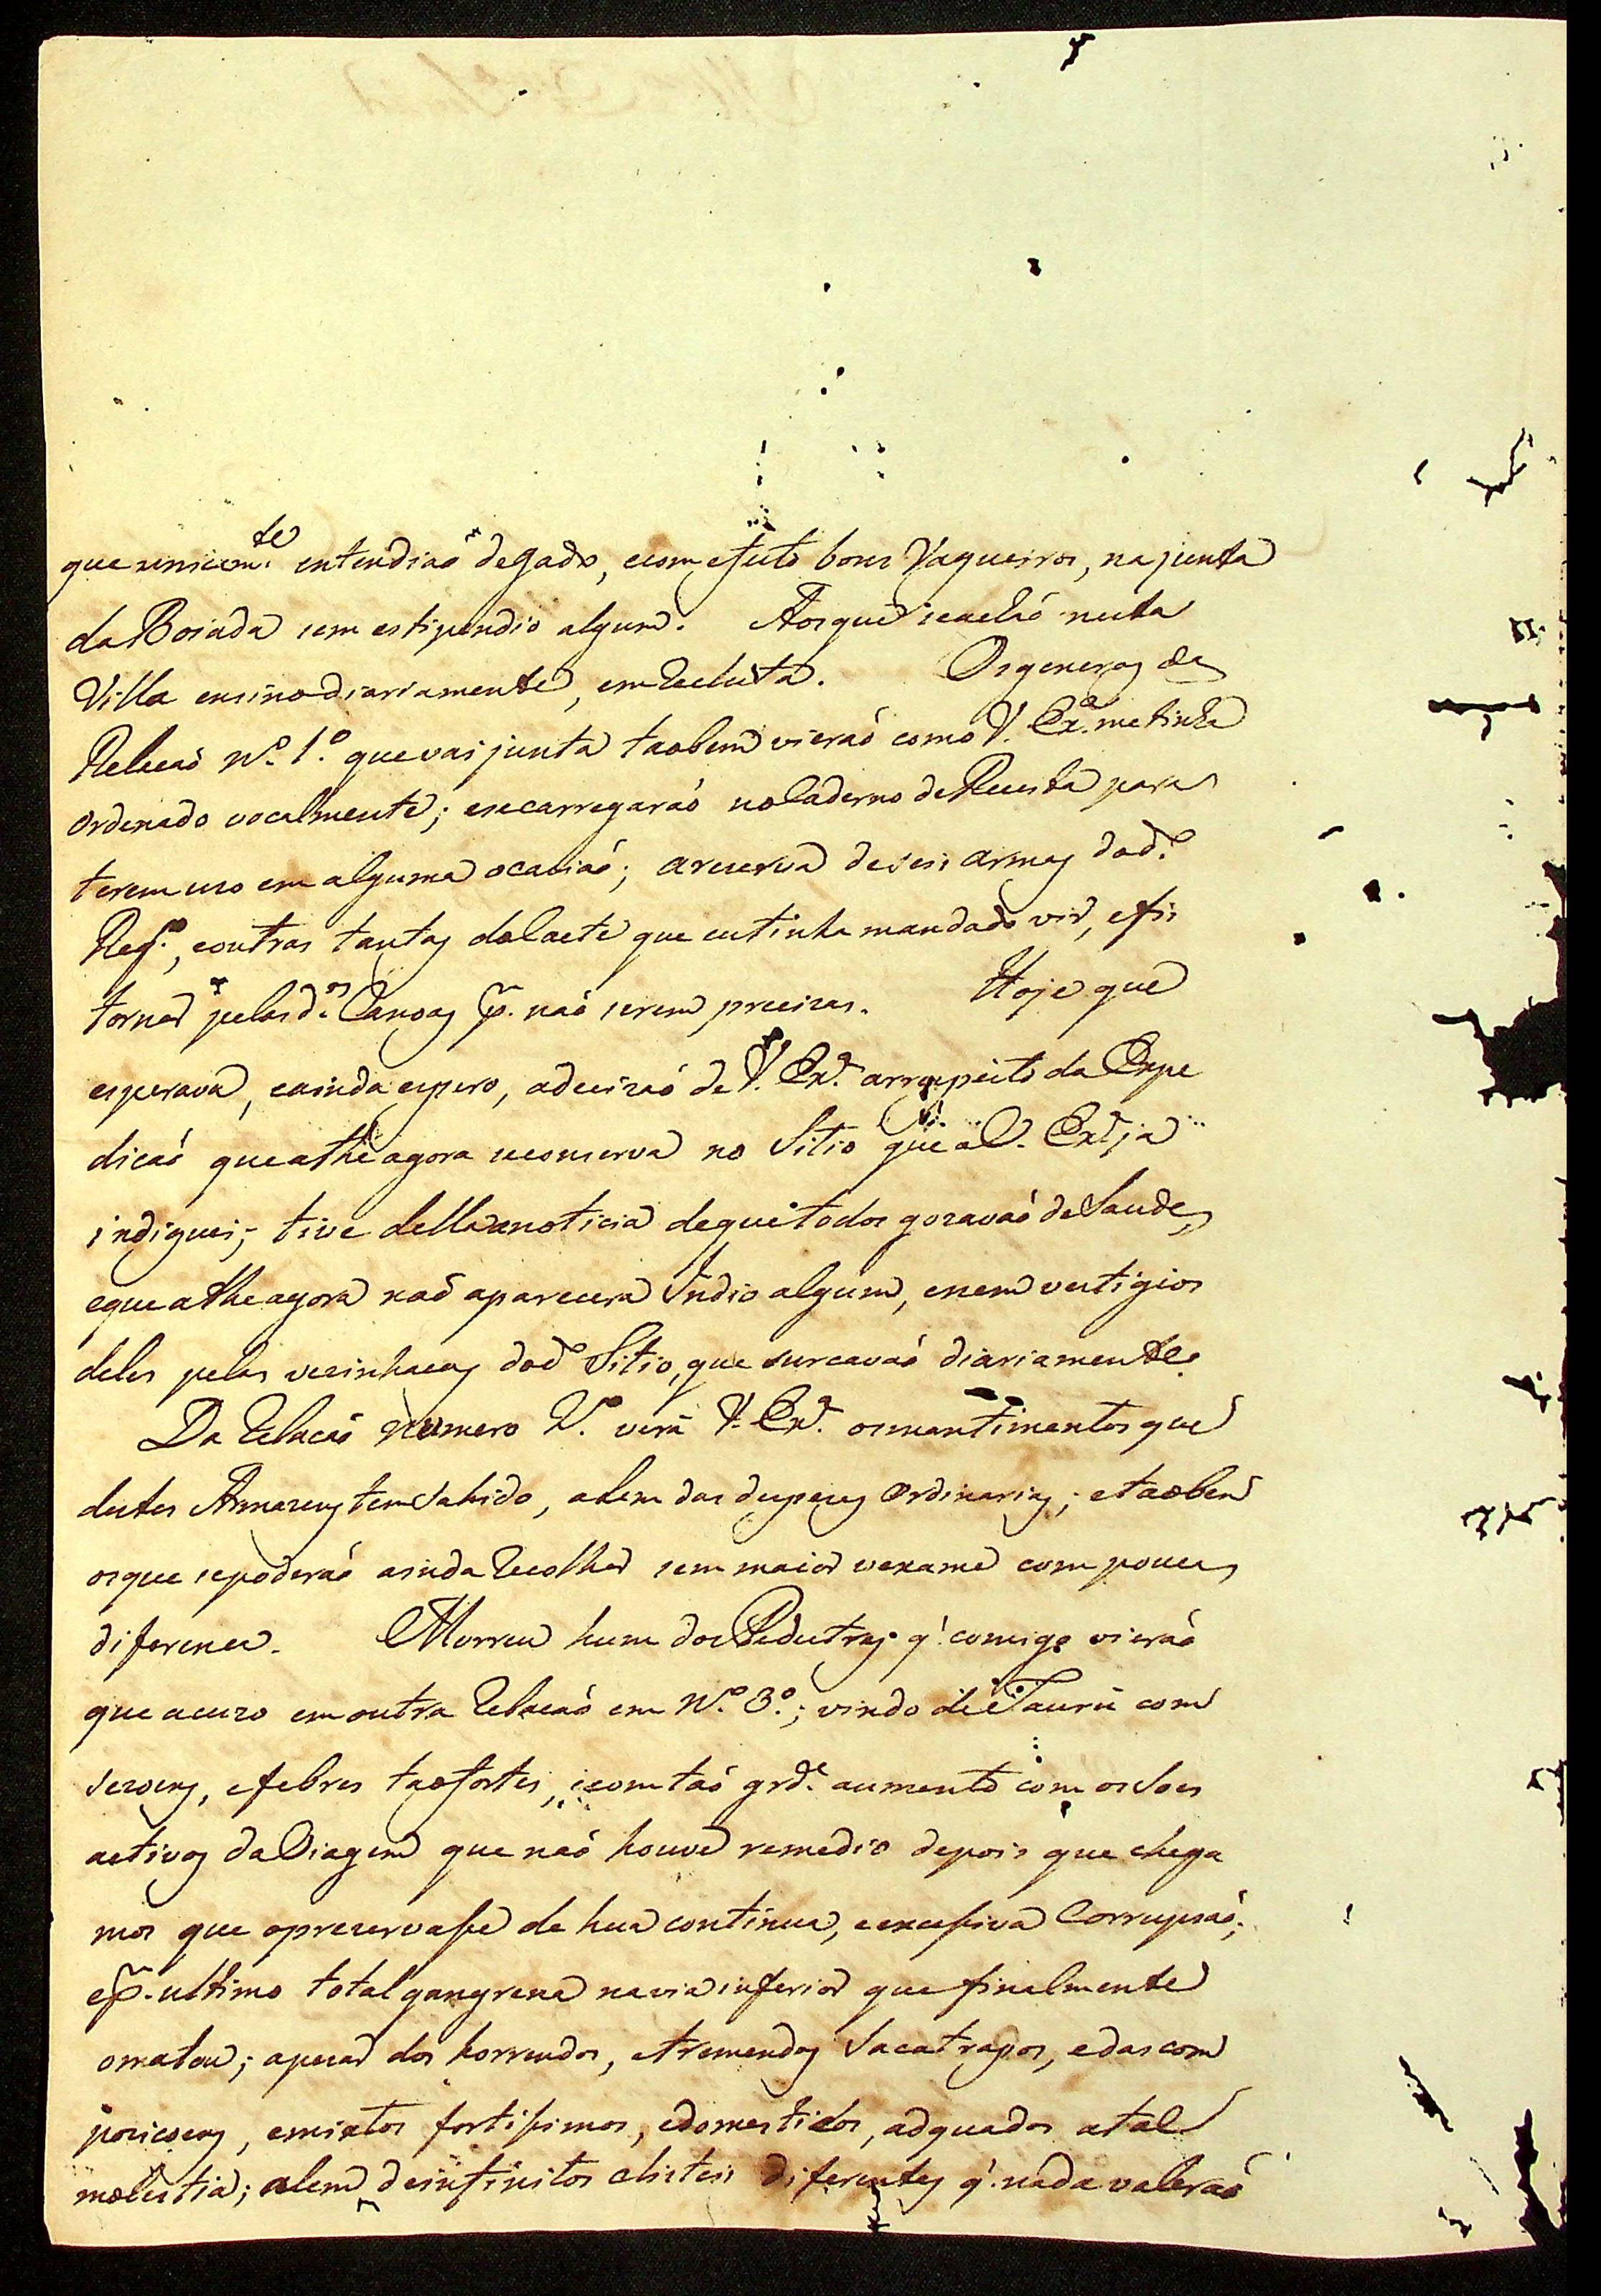 que unicam.te entendiaõ degado, ecom efeito bons Vaqueiros, najunta
da Boiada sem estipendio algum. Aos que seachaõ nesta
Villa ensino diariamente, em Recluta. Os generos da
Relacaõ N.º 1.º que vai junta taobem vieraõ como V. Ex.ª metinha
ordenado vocalmente; esecarregaraõ no Caderno de Receita para
terem uzo em alguma ocasiaõ; areserva deseis armas dod.º
Reg.º, eoutras tantas que eutinha mandado vir, efis
tornar pelas d.as Canoas p.r naõ serem precizas. Hoje que
esperava, eainda espero, adecizaõ de V. Ex.ª arrespeito da Expe
dicaõ que athe agora seconserva no Sitio que a V. Ex.ª ja
indiquei; tive della anoticia deque todos gozavaõ de Saude,
eque athe agora naõ aparecera Indio algum, enem vestigios
deles pelas vezinhacas dod.º Sitio, que surcavaõ diariamente.
Da Relacaõ numero 2.º verá V. Ex.ª os mantimentos que
destes Armazens tem Sahido, alem das despezas Ordinarias; etaobem
osque sepoderaõ ainda Recolher sem maior vexame com pouca
diferenca. Morreu hum dos Pedestres q' comigo vieraõ
que acuzo em outra Relacaõ em N.º 3.º; vindo de Taurú com
Sezoens, efebres taofortes, ecom taõ grd.e aumento com os Soes
activos da Viagem que naõ houve remedio depois que chega
mos que oprezervasse de hua continua, eexcessiva Corrupsaõ;
ep.r ultimo total gangrena navia inferior que finalmente
omatou; apezar dos horrendos, etremendos Sacatrapos, edas com
posicoens, emixtos fortissimos, edomesticos, adquados atal
molestia; alem deinfinitos clisteis diferentes q' nada valeraõ